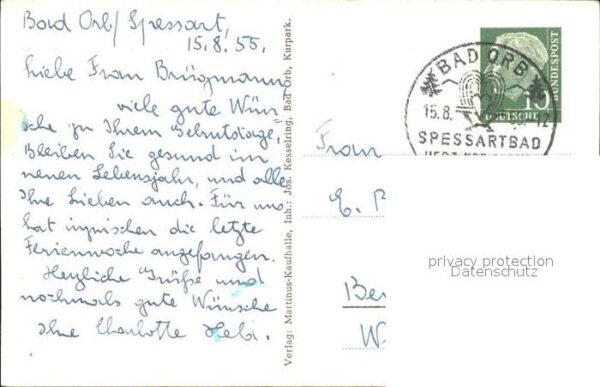 Bad Orb/Spessart,
15.8.55.
Liebe Frau Brügmann
viele gute Wün-
sche zu Ihrem Geburtstage,
Bleiben Sie gesund im
neuen Lebensjahr, und alle
Ihre Lieben auch. Für uns
hat inzwischen die letzte
Ferienwoche angefangen.
Herzliche Grüße und
nochmals gute Wünsche
Ihre Charlotte
Verlag: Martinus-Kaufhalle, Inh.: Jos. Kesselring, Bad Orb, Kurpark.
BAD ORB
15.8.
12
SPESSARTBAD
10
DEUTSCHE
BUNDESPOST
Frau
E.
Be
W
privacy protection
Datenschutz